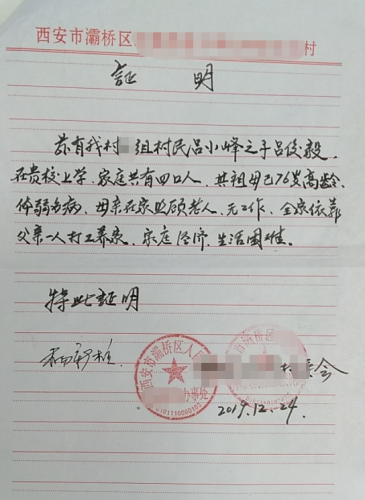 西安市灞桥区
村
证明
兹有我村 组村民吕小峰之子吕俊毅,
在贵校上学,家庭共有四口人,其祖母已76岁高龄,
体弱多病,母亲在家照顾老人,无工作,全家依靠
父亲一人打工养家,家庭经济,生活困难。
特此证明
西安市灞桥区人民
办事处
6101110000105
市灞桥区
村委会
2019.12.24.